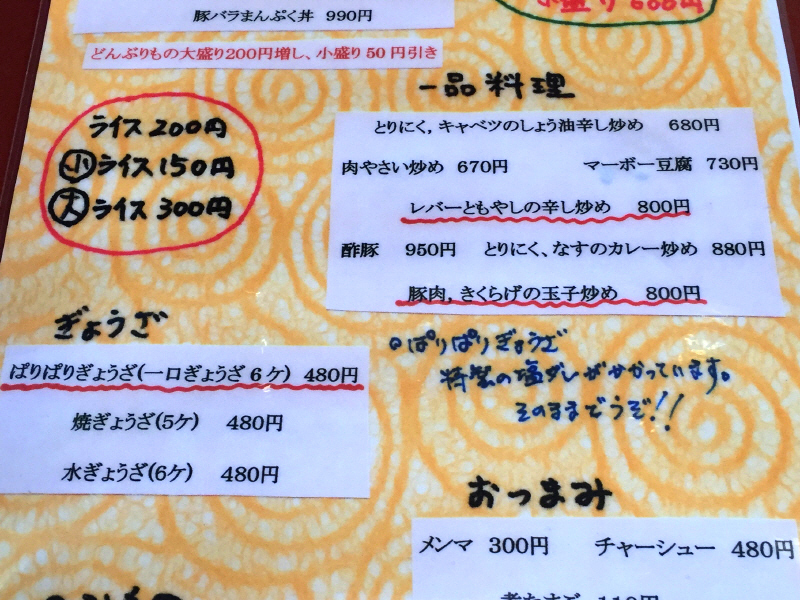 豚バラまんぷく丼 990円
小盛り 600円
どんぶりもの大盛り200円増し、小盛り50円引き
一品料理
とりにく,キャベツのしょう油辛し炒め 680円
肉やさい炒め 670円 マーボー豆腐 730円
レバーともやしの辛し炒め 800円
酢豚 950円 とりにく、なすのカレー炒め 880円
豚肉,きくらげの玉子炒め 800円
ライス200円
小ライス150円
大ライス300円
ぎょうざ
ぱりぱりぎょうざ(一口ぎょうざ6ケ) 480円
焼ぎょうざ(5ケ) 480円
水ぎょうざ(6ケ) 480円
ぱりぱりぎょうざ
特製の塩ダレがかかっています。
そのままどうぞ!!
おつまみ
メンマ 300円 チャーシュー 480円